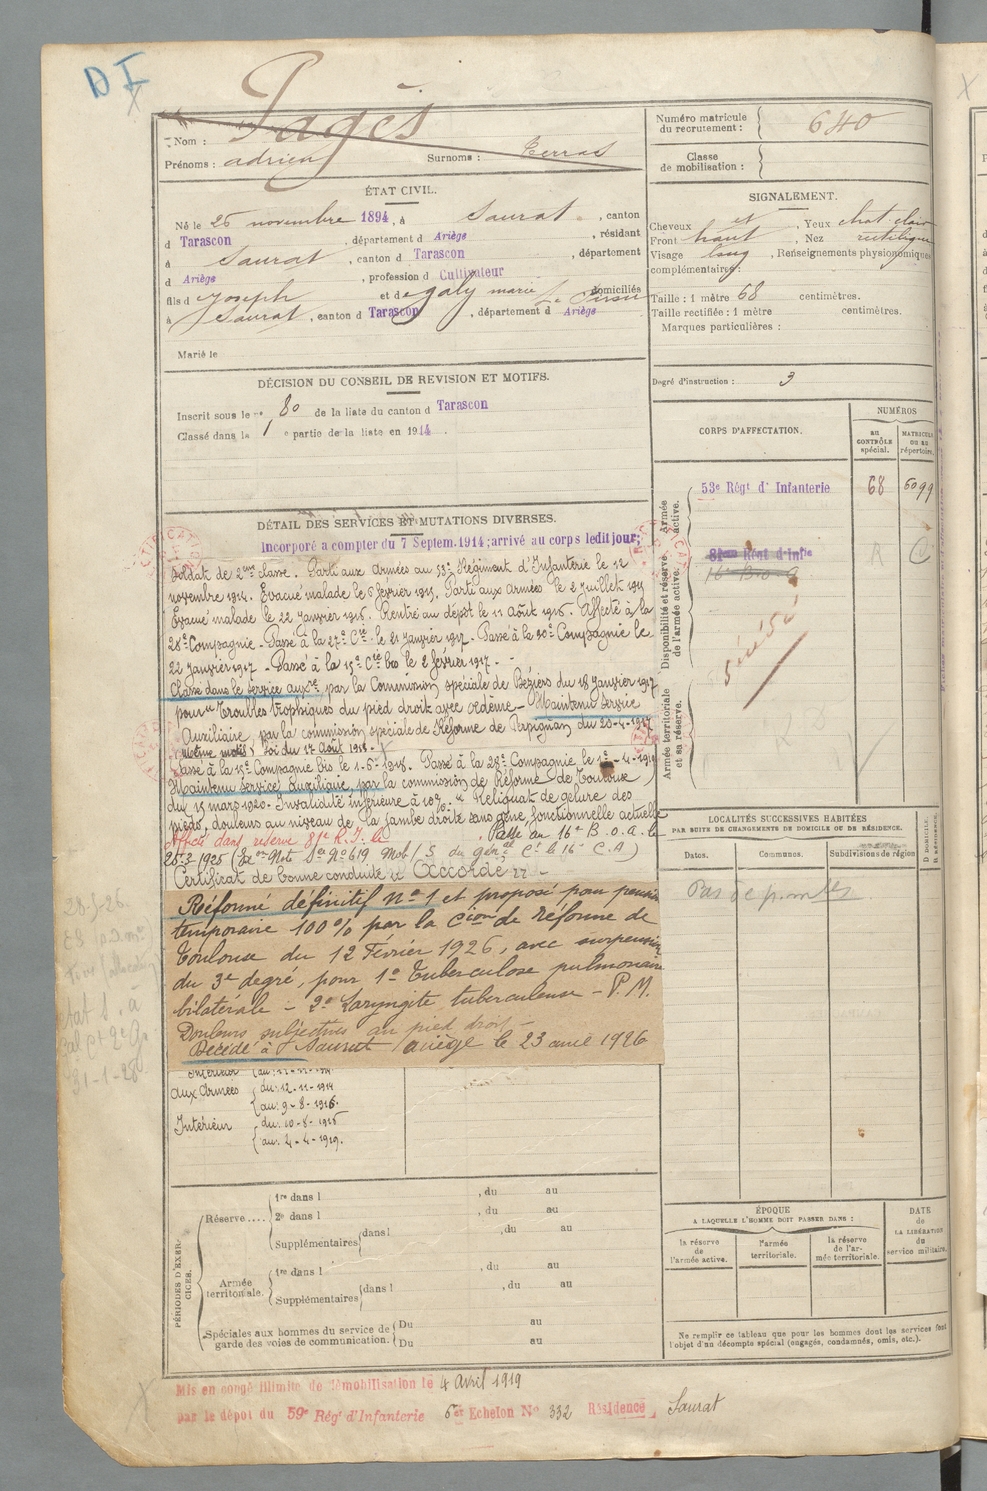 D I
Nom : Pagès
Prénoms : adrien Surnoms : Terras
Numéro matricule du recrutement : 640
Classe de mobilisation :
ÉTAT CIVIL.
Né le 26 novembre 1894, à Saurat, canton
d Tarascon, département d Ariège, résidant
à Saurat, canton d Tarascon, département
d Ariège, profession d Cultivateur
fils d Joseph et de galy marie domiciliés
à Saurat, canton d Tarascon, département d Ariège
Marié le
SIGNALEMENT.
Cheveux , Yeux chat. clair
Front haut , Nez rectiligne
Visage long , Renseignements physionomiques
complémentaires :
Taille : 1 mètre 68 centimètres.
Taille rectifiée : 1 mètre centimètres.
Marques particulières :
Degré d'instruction : 3
DÉCISION DU CONSEIL DE REVISION ET MOTIFS.
Inscrit sous le n° 80 de la liste du canton d Tarascon
Classé dans la 1 e partie de la liste en 1914.
CORPS D'AFFECTATION.
NUMÉROS
au CONTRÔLE spécial.
MATRICULE ou au répertoire.
Armée active.
53e Régt d' Infanterie 68 6099
Disponibilité et réserve de l'armée active.
81eme Régt d'Infie
16e B.o.a
R C
Décédé
Armée territoriale et sa réserve.
DÉTAIL DES SERVICES ET MUTATIONS DIVERSES.
Incorporé a compter du 7 Septem. 1914; arrivé au corps ledit jour;
Soldat de 2eme classe. Parti aux Armées au 53e Régiment d'Infanterie le 12
novembre 1914. Evacué malade le 6 février 1915. Parti aux Armées le 2 Juillet 1915
Evacué malade le 22 Janvier 1916. Rentré au dépôt le 11 Août 1916. Affecté à la
28e Compagnie - Passé à la 27e Cie le 21 Janvier 1917. Passé à la 30e Compagnie le
22 Janvier 1917 - Passé à la 15e Cie bis le 2 février 1917. -
Classé dans le service auxre par la Commission spéciale de Béziers du 18 Janvier 1917
pour "Troubles trophiques du pied droit avec oedème - Maintenu service
Auxiliaire par la commission spéciale de Réforme de Perpignan du 20-4-1917
Même motif Loi du 17 Août 1915. -
Passé à la 15e Compagnie bis le 1-6-1918. Passé à la 28e Compagnie le 1er-4-1919
Maintenu Service Auxiliaire, par la commission de Réforme de Toulouse
du 15 mars 1920. Invalidité inférieure à 10%. "Reliquat de gelure des
pieds, douleurs au niveau de la jambe droite sans gêne fonctionnelle actuelle
Affecté dans réserve 81e R.I. le Passé au 16e B.O.A. le
25-3-1925 (Son Note Son N° 619 Mob/5 du génal Ct le 16e C.A)
Certificat de bonne conduite "Accordé"
Réformé définitif n° 1 et proposé pour pension
temporaire 100% par la Cion de réforme de
Toulouse du 12 Février 1926, avec surpension
du 3e degré, pour 1° Tuberculose pulmonaire
bilatérale - 2° Laryngite tuberculeuse - P.M.
Douleurs subjectives au pied droit -
Décédé à Saurat Ariège le 23 avril 1926
Intérieur
aux Armées du: 12-11-1914
au: 9-8-1916.
Intérieur du: 10-8-1916
au: 4-4-1919.
LOCALITÉS SUCCESSIVES HABITÉES
PAR SUITE DE CHANGEMENTS DE DOMICILE OU DE RÉSIDENCE.
Dates. Communes. Subdivisions de région
D DOMICILE. R RÉSIDENCE.
28-J-26
31-1-28
PÉRIODES D'EXERCICES.
Réserve....
1re dans l , du au
2e dans l , du au
Supplémentaires dans l , du au
Armée territoriale.
1re dans l , du au
Supplémentaires dans l , du au
Spéciales aux hommes du service de garde des voies de communication.
Du au
Du au
ÉPOQUE
A LAQUELLE L'HOMME DOIT PASSER DANS :
la réserve de l'armée active.
l'armée territoriale.
la réserve de l'armée territoriale.
DATE de LA LIBÉRATION du service militaire.
Ne remplir ce tableau que pour les hommes dont les services font
l'objet d'un décompte spécial (engagés, condamnés, omis, etc.).
Mis en congé illimité de démobilisation le 4 Avril 1919
par le dépot du 59e Régt d'Infanterie 6er Echelon N° 332 Résidence Saurat